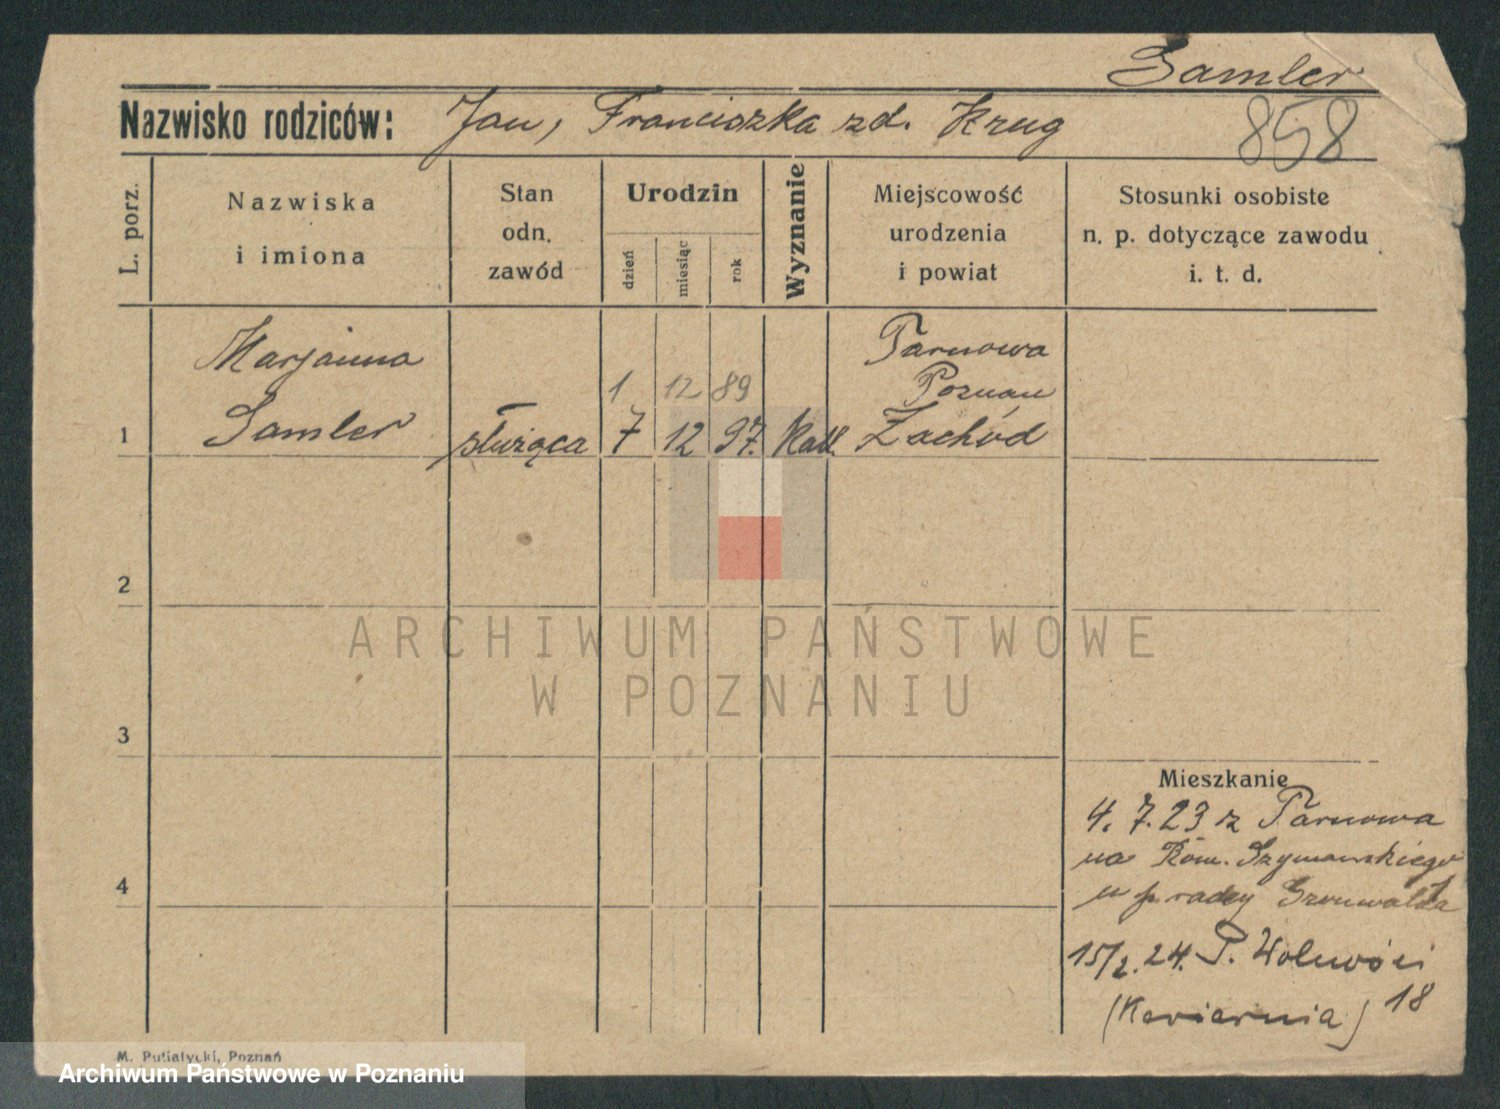 Samler
Nazwisko rodziców: Jan, Franciszka zd. Krug
858
L. porz.
Nazwiska
i imiona
Stan
odn.
zawód
Urodzin
dzień
miesiąc
rok
Wyznanie
Miejscowość
urodzenia
i powiat
Stosunki osobiste
n. p. dotyczące zawodu
i. t. d.
Marjanna
Tarnowa
1 12 89
Poznań
1
Samler
służąca
7 12 97.
Kath.
Zachód
2
ARCHIWUM PAŃSTWOWE
W POZNANIU
3
Mieszkanie
4. 7. 23 z Tarnowa
na Rom. Szymańskiego
u p. radcy Gronwalda
4
15/2. 24. P. Wolności
(Kawiarnia) 18
M. Putiatycki, Poznań
Archiwum Państwowe w Poznaniu